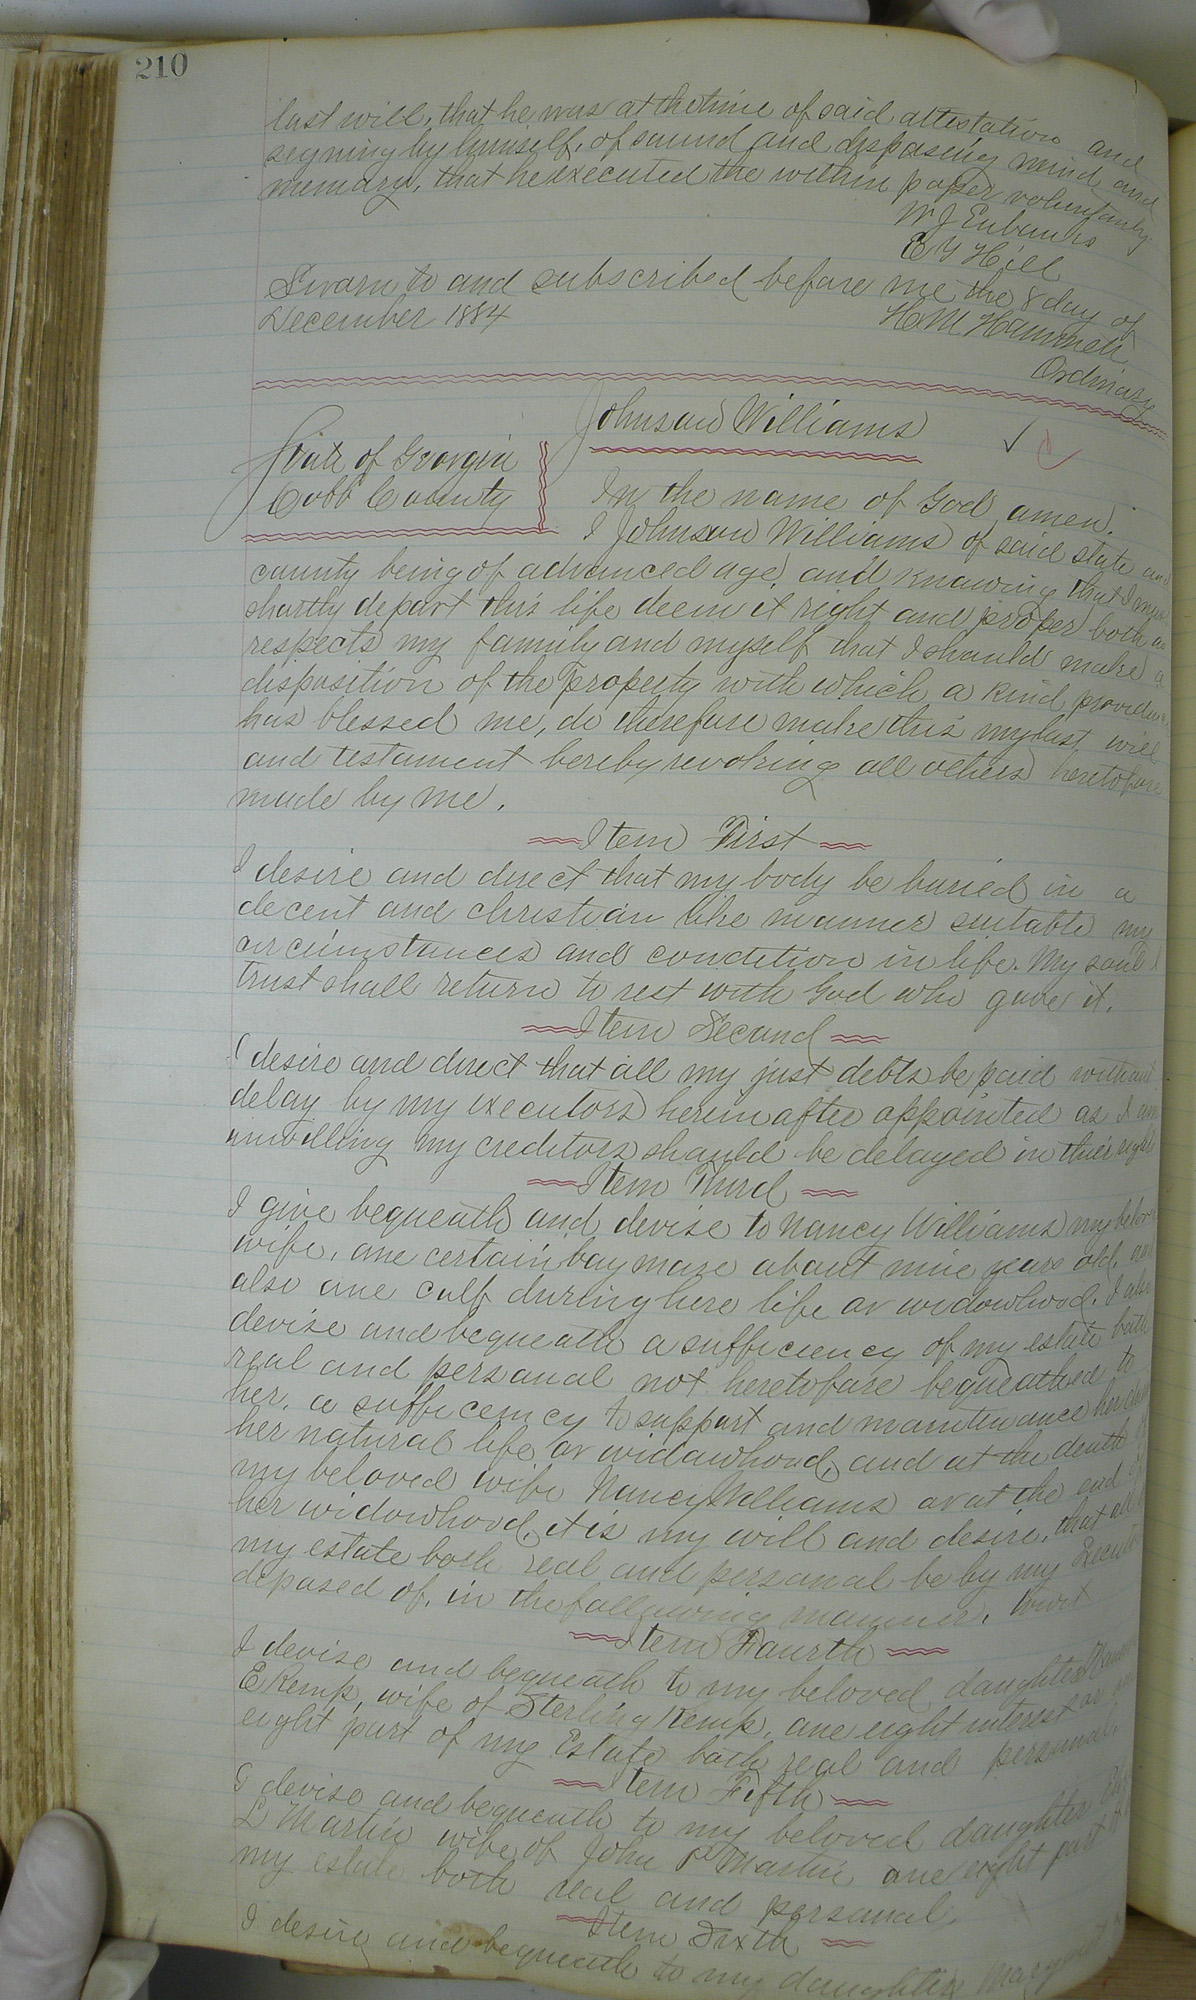 210
last will, that he was at the time of said attestation and
signing by himself, of sound and disposing mind and
memory, that he executed the within paper voluntarily
W J Eubanks
E Y Hill
Sworn to and subscribed before me the 8 day of
December 1884
H M Hammett
Ordinary
Johnson Williams
State of Georgia
Cobb County
In the name of God amen.
I Johnson Williams of said state and
county being of advanced age, and knowing that I must
shortly depart this life deem it right and proper both as
respects my family and myself that I should make a
disposition of the Property with which a kind providence
has blessed me, do therefore make this my last will
and testament hereby revoking all others heretofore
made by me.
Item First
I desire and direct that my body be buried in a
decent and christian like manner suitable my
circumstances and condition in life. My soul I
trust shall return to rest with God who gave it.
Item Second
I desire and direct that all my just debts be paid without
delay by my executors herein after appointed as I am
unwilling my creditors should be delayed in their rights
Item Third
I give bequeath and devise to Nancy Williams my belov
wife, one certain bay mare about nine years old, and
also one calf during here life or widowhood. I also
devise and bequeath a sufficiency of my estate both
real and personal not heretofore bequeathed to
her, a sufficency to support and maintenance her
her natural life or widowhood, and at the death of
my beloved wife Nancy Williams or at the end of
her widowhood, it is my will and desire, that all of
my estate both real and personal be by my Execut
deposed of, in the following manner, towit
Item Fourth
I devise and bequeath to my beloved daughter
E Kemp, wife of Sterling Kemp, one eight interest or one
eight part of my Estate both real and personal.
Item Fifth
I devise and bequeath to my beloved daughter
L Martin wife of John P Martin one eight part of
my estate both real and personal.
Item Sixth
I desire and bequeath to my daughter Margaret